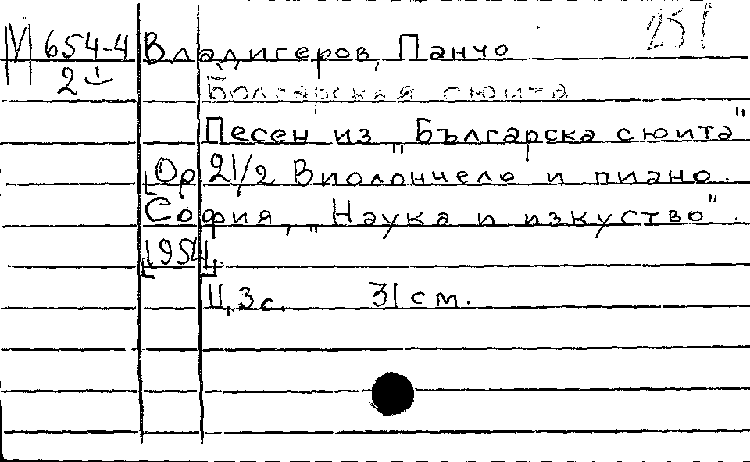 251
М 654-4 Владигеров, Панчо
2
Болгарская сюита
Песен из „Българска сюита"
[Ор 21/2 Виолончело и пиано.
София, „Наука и изкуство".
[1954].
11, 3 с. 31 см.